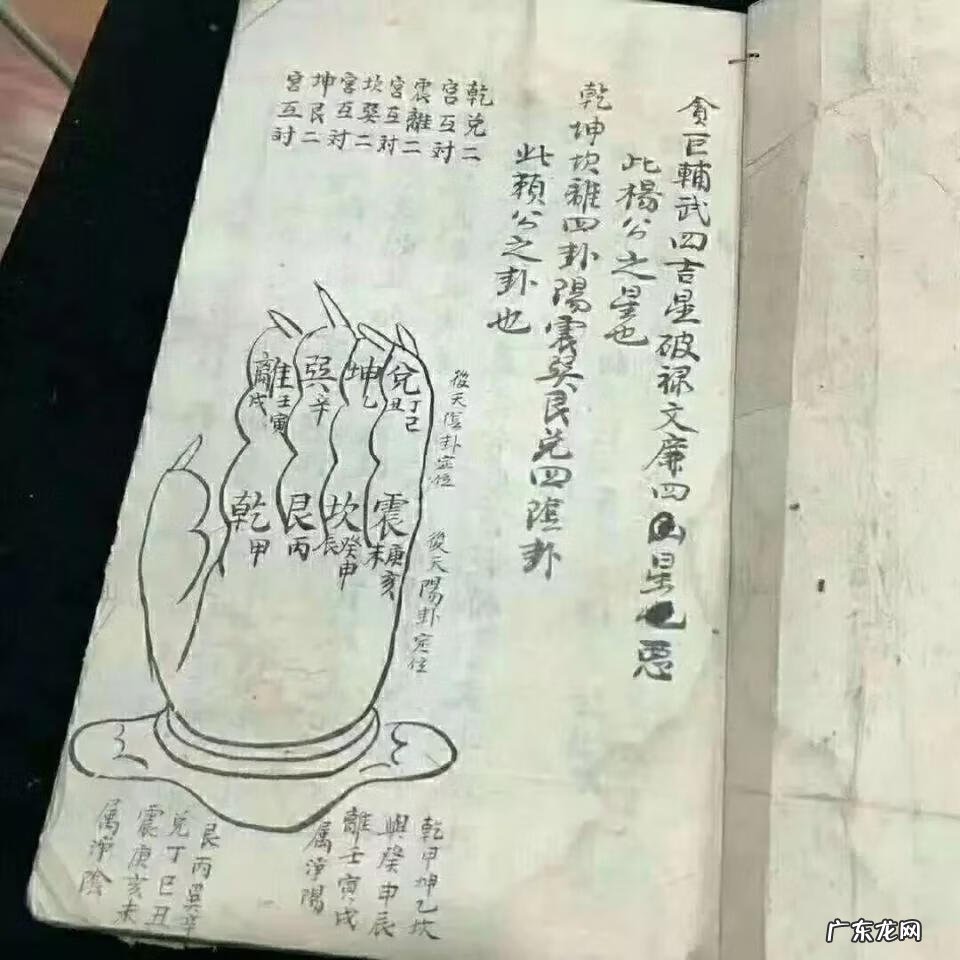 貪巨輔武四吉星破祿文廉四凶星也惡
此楊公之星也
乾坤坎離四卦陽震巽艮兌四陰卦
此賴公之卦也
乾兌二
宮互対
震離二
宮互対
坎巽二
宮互対
坤艮二
宮互対
離壬寅戌
巽辛
坤乙
兌丁己丑
後天陰卦定位
乾甲
艮丙
坎癸申辰
震庚亥未
後天陽卦定位
乾甲坤乙坎
癸申辰
離壬寅戌
属淨陽
艮丙巽辛
兌丁巳丑
震庚亥未
属淨陰
广东龙网